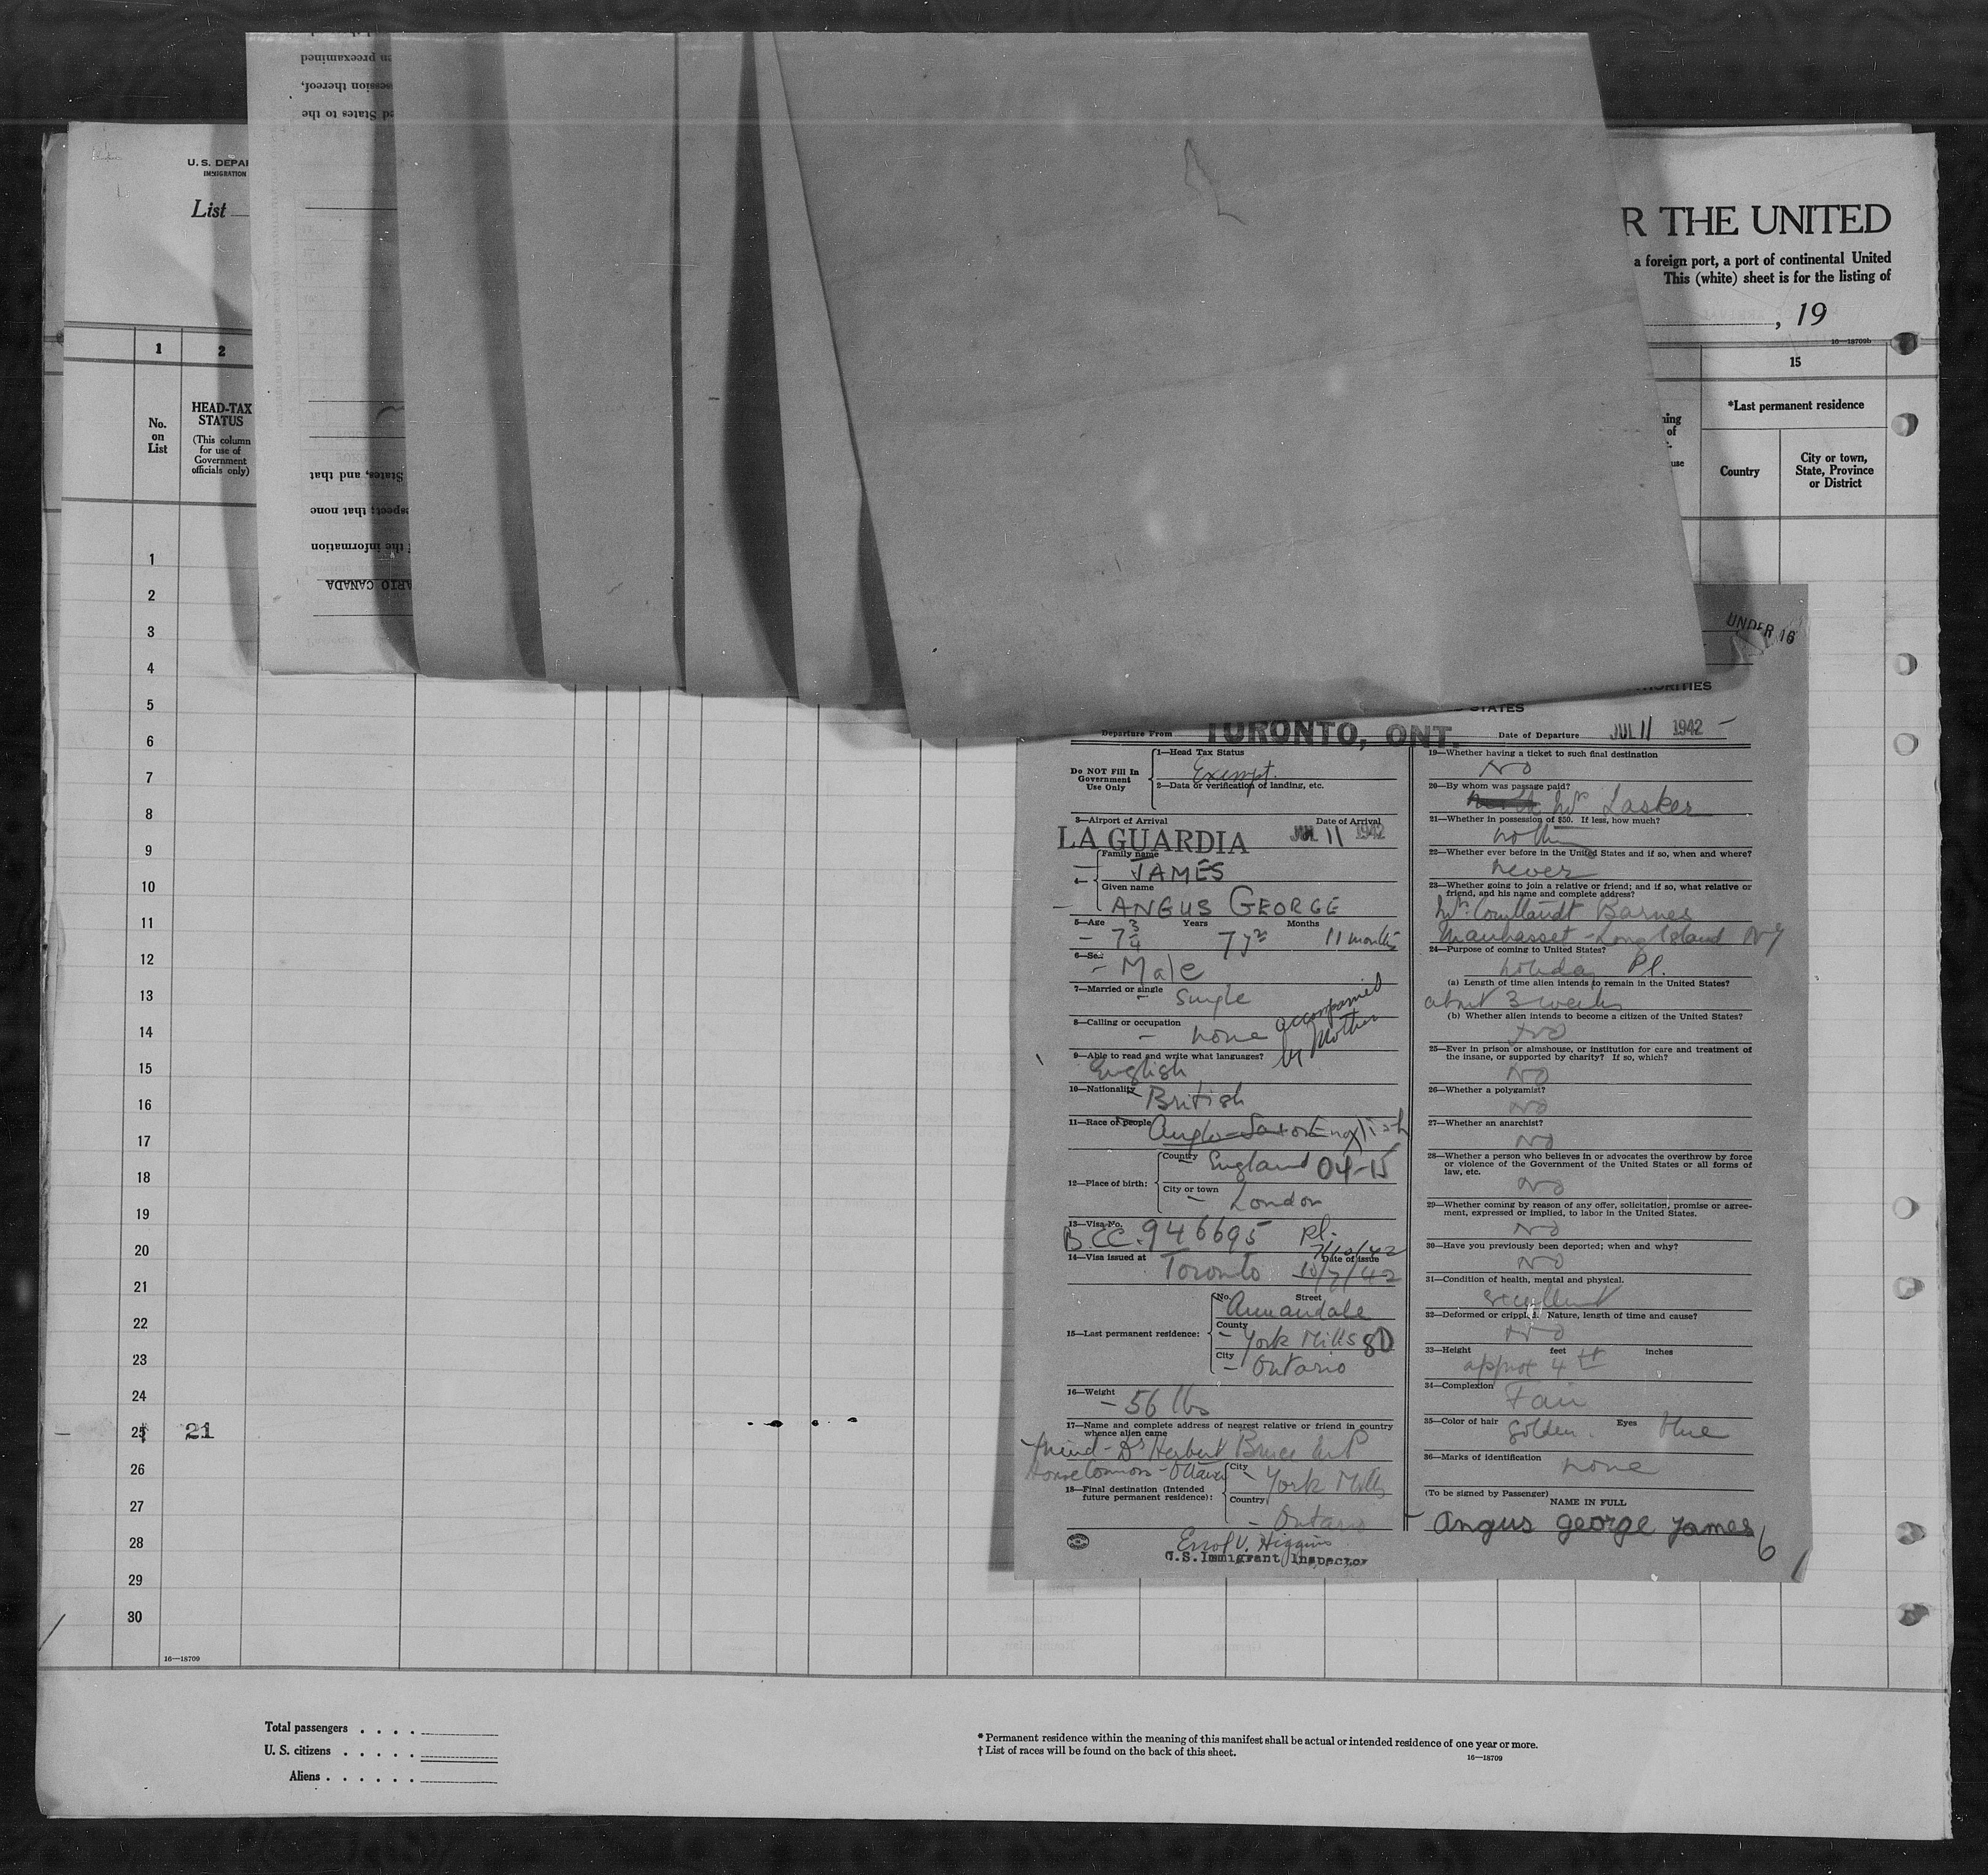 U. S. DEPA
IMMIGRATION
List
R THE UNITED
a foreign port, a port of continental United
This (white) sheet is for the listing of
, 19
16—18709b
1
2
15
No.
on
List
HEAD-TAX
STATUS
(This column
for use of
Government
officials only)
*Last permanent residence
Country
City or town,
State, Province
or District
1
2
3
4
5
6
7
8
9
10
11
12
13
14
15
16
17
18
19
20
21
22
23
24
25 21
26
27
28
29
30
16—18709
Total passengers . . . .
U. S. citizens . . . . .
Aliens . . . . . .
* Permanent residence within the meaning of this manifest shall be actual or intended residence of one year or more.
† List of races will be found on the back of this sheet.
16—18709
ed States to the
session thereof,
en preexamined
States, and that
spect; that none
f the information
ARIO CANADA
UNDER 16
STATES
Departure From TORONTO, ONT. Date of Departure JUL 11 1942
Do NOT Fill In
Government
Use Only
1—Head Tax Status
Exempt.
2—Data or verification of landing, etc.
3—Airport of Arrival Date of Arrival
LA GUARDIA JUL 11 1942
Family name
JAMES
4—
Given name
ANGUS GEORGE
5—Age Years Months
7 3/4 7 yrs 11 months
6—Sex
Male
7—Married or single
Single
8—Calling or occupation
none
accompanied
by Mother
9—Able to read and write what languages?
English
10—Nationality
British
11—Race of people
Anglo-Saxon English
12—Place of birth:
Country
England 04-15
City or town
London
13—Visa No.
B.CC. 946695 Pl.
7/10/42
14—Visa issued at Date of issue
Toronto 10/7/42
15—Last permanent residence:
No. Street
Annandale
County
York Mills 80
City
Ontario
16—Weight
56 lbs
17—Name and complete address of nearest relative or friend in country
whence alien came
friend - Dr Herbert Bruce M P
House Commons - Ottawa
18—Final destination (Intended
future permanent residence):
City
York Mills
Country
Ontario
Errol V. Higgins
U.S. Immigrant Inspector
19—Whether having a ticket to such final destination
No
20—By whom was passage paid?
Mrs Lasker
21—Whether in possession of $50. If less, how much?
nothing
22—Whether ever before in the United States and if so, when and where?
never
23—Whether going to join a relative or friend; and if so, what relative or
friend, and his name and complete address?
Mrs. Courtlandt Barnes
Manhasset - Long Island NY
24—Purpose of coming to United States?
holiday Pl.
(a) Length of time alien intends to remain in the United States?
about 3 weeks
(b) Whether alien intends to become a citizen of the United States?
No
25—Ever in prison or almshouse, or institution for care and treatment of
the insane, or supported by charity? If so, which?
No
26—Whether a polygamist?
No
27—Whether an anarchist?
No
28—Whether a person who believes in or advocates the overthrow by force
or violence of the Government of the United States or all forms of
law, etc.
No
29—Whether coming by reason of any offer, solicitation, promise or agree-
ment, expressed or implied, to labor in the United States.
No
30—Have you previously been deported; when and why?
No
31—Condition of health, mental and physical.
excellent
32—Deformed or crippled. Nature, length of time and cause?
No
33—Height feet inches
approx 4 ft
34—Complexion
Fair
35—Color of hair Eyes
golden. blue
36—Marks of identification
none
(To be signed by Passenger)
NAME IN FULL
angus george james
6